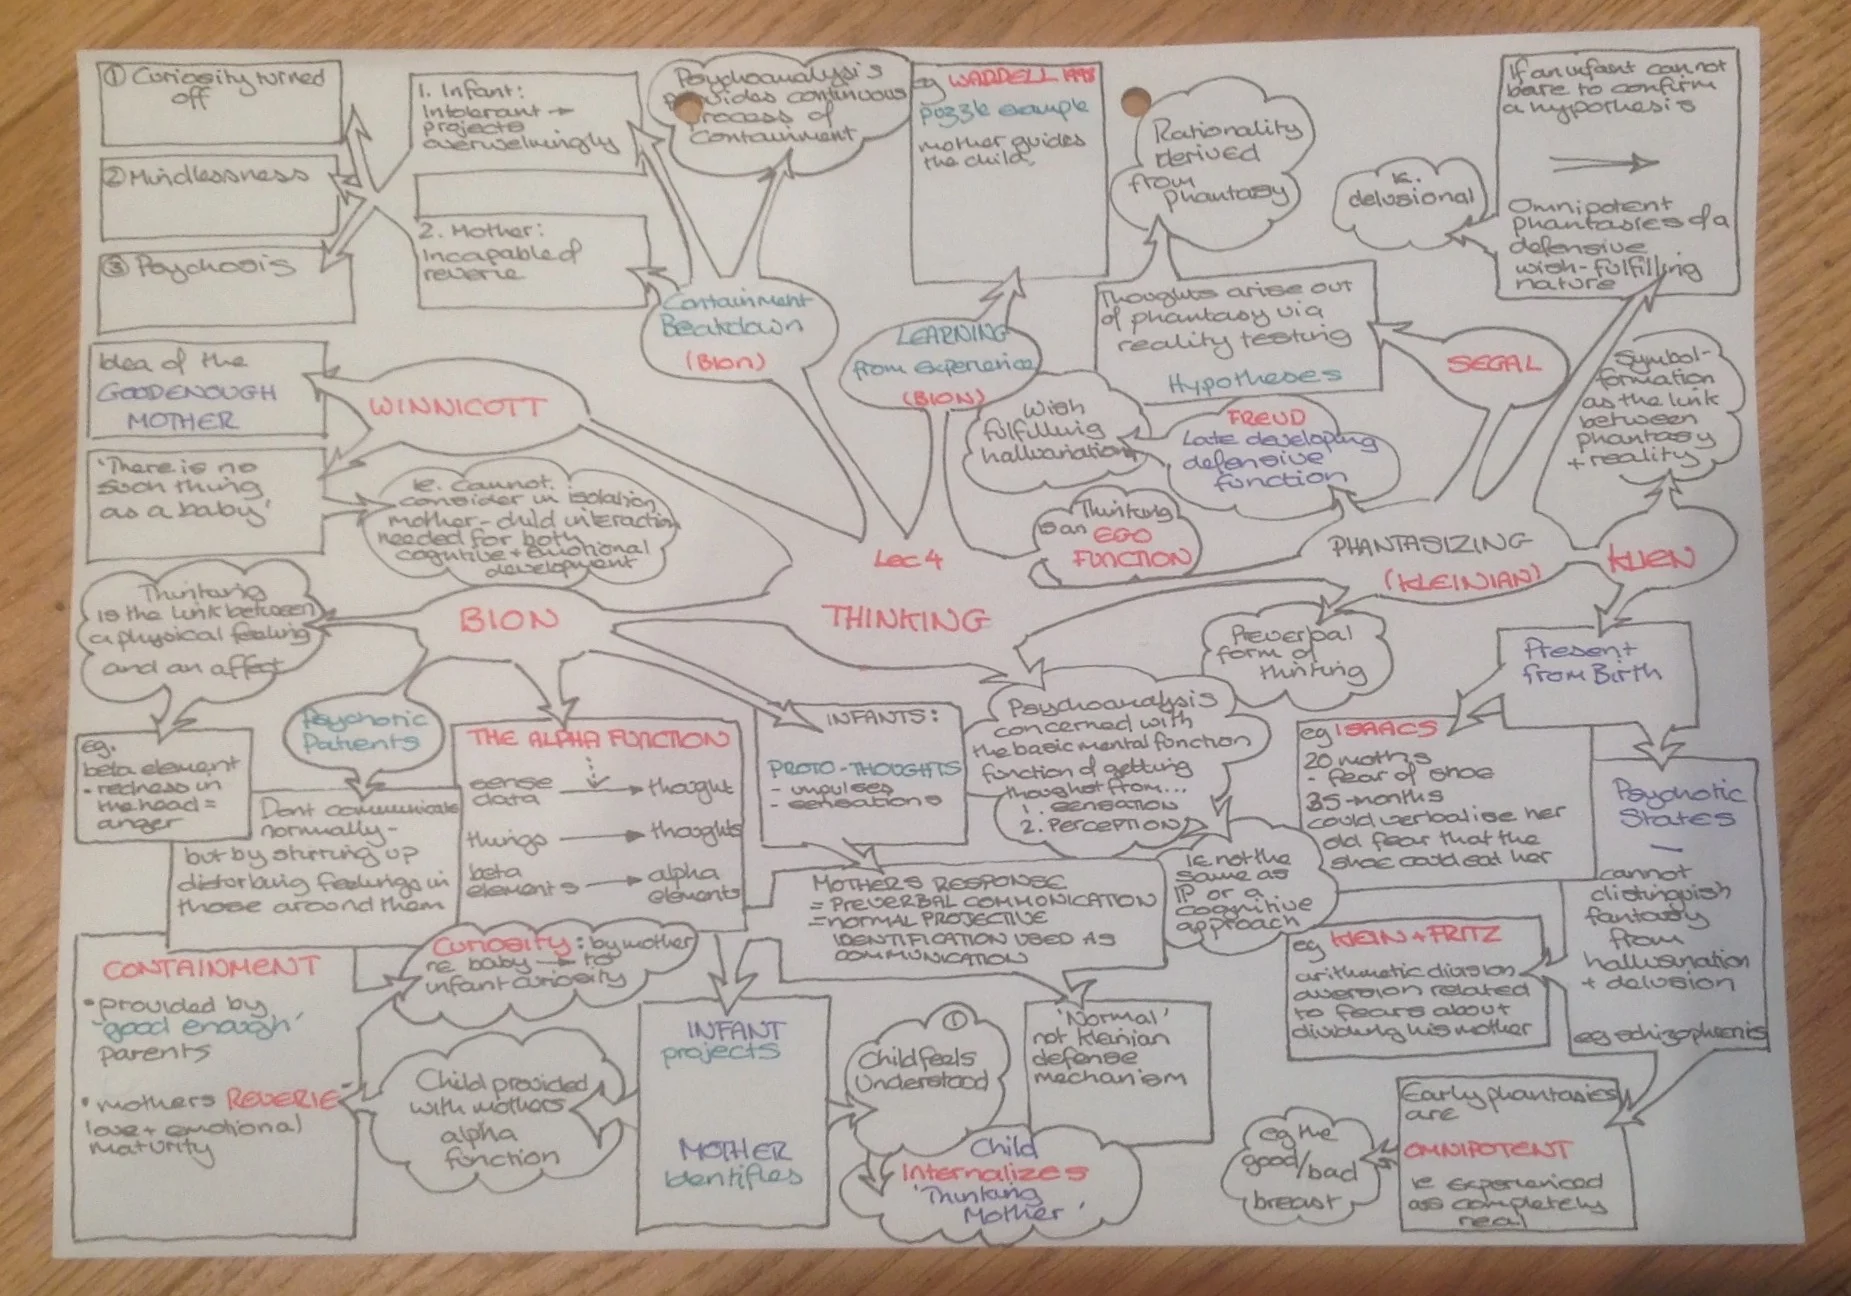 ① Curiosity turned
off
② Mindlessness
③ Psychosis
1. Infant:
Intolerant →
projects
overwelmingly
2. Mother:
Incapable of
reverie
Psychoanalysis
provides continuous
process of
containment
Containment
Beakdown
(Bion)
eg WADDELL 1998
puzzle example
mother guides
the child.
LEARNING
from experience
(BION)
Rationality
derived
from
phantasy
ie.
delusional
If an infant cannot
bare to confirm
a hypothesis
Omnipotent
phantasies of a
defensive
wish-fulfilling
nature
Thoughts arise out
of phantasy via
reality testing
Hypotheses
SEGAL
Symbol-
formation
as the link
between
phantasy
+ reality
Idea of the
GOODENOUGH
MOTHER
WINNICOTT
'There is no
such thing
as a baby'
ie. cannot
consider in isolation
mother-child interaction
needed for both
cognitive + emotional
development
Wish
fulfilling
FREUD
Late developing
defensive
function
Thinking
is an EGO
FUNCTION
PHANTASIZING
(KLEINIAN)
KLIEN
Lec 4
THINKING
BION
Thinking
is the link between
a physical feeling
and an affect
Preverbal
form of
thinking
Present
from Birth
eg.
beta element
- redness in
the head =
anger
Psychotic
Patients
Dont communicate
normally -
but by stirring up
disturbing feelings in
those around them
THE ALPHA FUNCTION
sense
data → thought
things → thoughts
beta
elements → alpha
elements
INFANTS:
PROTO-THOUGHTS
- impulses
- sensations
Psychoanalysis
concerned with
the basic mental function
function of getting
thoughst from...
1. SENSATION
2. PERCEPTION
IE not the
same as
IP or a
cognitive
approach
eg ISAACS
20 moths
- fear of shoe
35-months
could verbalise her
old fear that the
shoe could eat her
Psychotic
States
—
cannot
distinguish
fantasy
from
hallusination
+ delusion
eg schizophrenis
MOTHERS RESPONSE
= PREVERBAL COMMUNICATION
= NORMAL PROJECTIVE
IDENTIFICATION USED AS
COMMUNICATION
eg KLEIN + FRITZ
arithmetic division
aversion related
to fears about
dividing his mother
CONTAINMENT
• provided by
'good enough'
parents
• mothers REVERIE
love + emotional
maturity
Curiosity: by mother
re baby → to
infant curiosity
Child provided
with mothers
alpha
function
INFANT
projects
MOTHER
identifies
①
Child feels
Understood
'Normal'
not kleinian
defense
mechanism
Child
Internalizes
'Thinking
Mother'
Early phantasies
are
OMNIPOTENT
ie experienced
as completely
real
eg the
good/bad
breast